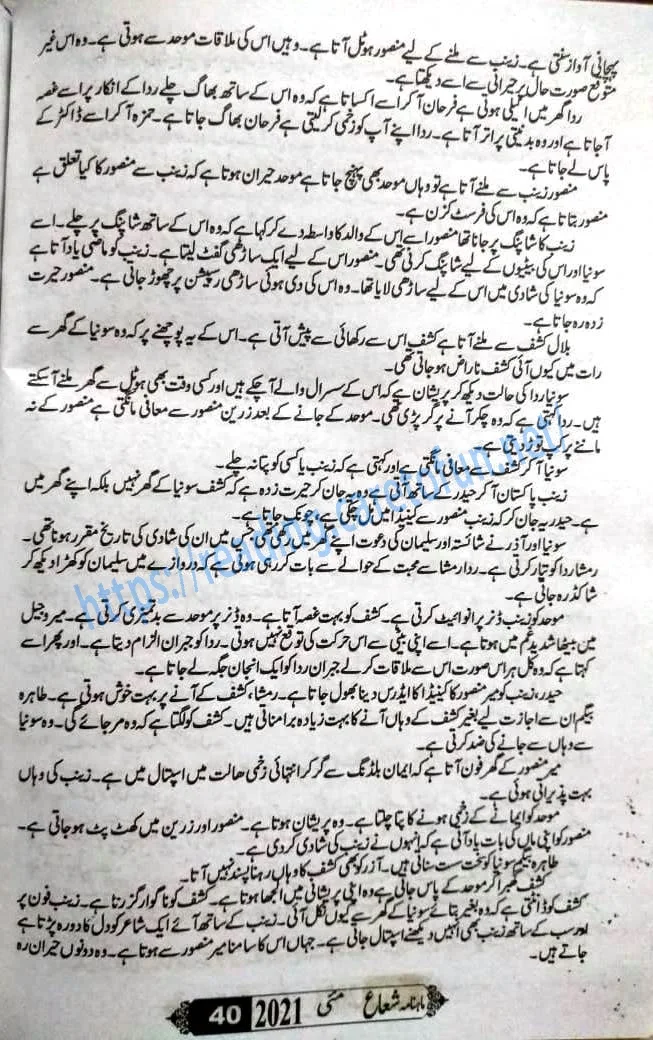 پہچانی آواز سنتی ہے۔ زینب سے ملنے کے لیے منصور ہوٹل آتا ہے۔ وہیں اس کی ملاقات موحد سے ہوتی ہے۔ وہ اس غیر
متوقع صورت حال پر حیرانی سے اسے دیکھتا ہے۔
ردا گھر میں اکیلی ہوتی ہے فرحان آ کر اسے اکساتا ہے کہ وہ اس کے ساتھ بھاگ چلے ردا کے انکار پر اسے غصہ
آجاتا ہے اور وہ بدنیتی پر اتر آتا ہے۔ ردا اپنے آپ کو زخمی کر لیتی ہے فرحان بھاگ جاتا ہے۔ حمزہ آکر اسے ڈاکٹر کے
پاس لے جاتا ہے۔
منصور زینب سے ملنے آتا ہے تو وہاں موحد بھی پہنچ جاتا ہے موحد حیران ہوتا ہے کہ زینب سے منصور کا کیا تعلق ہے
منصور بتاتا ہے کہ وہ اس کی فرسٹ کزن ہے۔
زینب کا شاپنگ پر جانا تھا منصور اسے اس کے والد کا واسطہ دے کر کہتا ہے کہ وہ اس کے ساتھ شاپنگ پر چلے۔ اسے
سونیا اور اس کی بیٹیوں کے لیے شاپنگ کرنی تھی۔ منصور اس کے لیے ایک ساڑھی گفٹ لیتا ہے۔ زینب کو ماضی یاد آتا ہے
کہ وہ سونیا کی شادی میں اس کے لیے ساڑھی لایا تھا۔ وہ اس کی دی ہوئی ساڑھی رسپشن پر چھوڑ جاتی ہے۔ منصور حیرت
زدہ رہ جاتا ہے۔
بلال کشف سے ملنے آتا ہے کشف اس سے رکھائی سے پیش آتی ہے۔ اس کے یہ پوچھنے پر کہ وہ سونیا کے گھر سے
رات میں کیوں آئی کشف ناراض ہو جاتی تھی۔
سونیا ردا کی حالت دیکھ کر پریشان ہے کہ اس کے سسرال والے آچکے ہیں اور کسی وقت بھی ہوٹل سے گھر ملنے آسکتے
ہیں۔ ردا کہتی ہے کہ وہ چکر آنے پر گر پڑی تھی۔ موحد کے جانے کے بعد زرین منصور سے معافی مانگتی ہے منصور کے نہ
ماننے پر کپ توڑ دیتی ہے۔
سونیا آ کر کشف سے معافی مانگتی ہے اور کہتی ہے کہ زینب یا کسی کو پتا نہ چلے۔
زینب پاکستان آ کر حیدر کے ساتھ آتی ہے وہ یہ جان کر حیرت زدہ ہے کہ کشف سونیا کے گھر نہیں بلکہ اپنے گھر میں
ہے۔ حیدر یہ جان کر کہ زینب منصور سے کینیڈا میں مل چکی ہے، چونک جاتا ہے۔
سونیا اور آذر نے شائستہ اور سلیمان کی دعوت اپنے گھر میں رکھی تھی جس میں ان کی شادی کی تاریخ مقرر ہونا تھی۔
رمشا ردا کو تیار کرتی ہے۔ ردا رمشا سے محبت کے حوالے سے بات کر رہی ہوتی ہے کہ دروازے میں سلیمان کو کھڑا دیکھ کر
شاکڈ رہ جاتی ہے۔
موحد کو زینب ڈنر پر انوائیٹ کرتی ہے۔ کشف کو بہت غصہ آتا ہے۔ وہ ڈنر پر موحد سے بدتمیزی کرتی ہے۔ میر وجیل
میں بیٹھا شدید غم میں ہوتا ہے۔ اسے اپنی بیٹی سے اس حرکت کی توقع نہیں ہوتی۔ ردا کو جبران الزام دیتا ہے۔ اور پھر اسے
کہتا ہے کہ وہ کل ہر اس صورت اس سے ملاقات کر لے جبران ردا کو ایک انجان جگہ لے جاتا ہے۔
حیدر، زینب کو میر منصور کا کینیڈا کا ایڈرس دینا بھول جاتا ہے۔ رمشا، کشف کے آنے پر بہت خوش ہوتی ہے۔ طاہرہ
بیگم ان سے اجازت لیے بغیر کشف کے وہاں آنے کا بہت زیادہ برا مناتی ہیں۔ کشف کو لگتا ہے کہ وہ مر جائے گی۔ وہ سونیا
سے وہاں سے جانے کی ضد کرتی ہے۔
میر منصور کے گھر فون آتا ہے کہ ایمان بلڈنگ سے گر کر انتہائی زخمی حالت میں اسپتال میں ہے۔ زینب کی وہاں
بہت پذیرائی ہوئی ہے۔
موحد کو ایمانے کے زخمی ہونے کا پتا چلتا ہے۔ وہ پریشان ہوتا ہے۔ منصور اور زرین میں کھٹ پٹ ہو جاتی ہے۔
منصور کو اپنی ماں کی بات یاد آتی ہے کہ انہوں نے زینب کی شادی کر دی ہے۔
طاہرہ بیگم سونیا کو سخت ست سناتی ہیں۔ آزر کو بھی کشف کا وہاں رہنا پسند نہیں آتا۔
کشف گھبرا کر موحد کے پاس جاتی ہے وہ اپنی پریشانی میں الجھا ہوتا ہے۔ کشف کو ناگوار گزرتا ہے۔ زینب فون پر
کشف کو ڈانٹتی ہے کہ وہ بغیر بتائے سونیا کے گھر سے کیوں نکل آئی۔ زینب کے ساتھ آئے ایک شاعر کو دل کا دورہ پڑتا ہے
اور سب کے ساتھ زینب بھی انہیں دیکھنے اسپتال جاتی ہے۔ جہاں اس کا سامنا میر منصور سے ہوتا ہے۔ وہ دونوں حیران رہ
جاتے ہیں۔
ماہنامہ شعاع مئی 2021 40
https://reading.caretofun.net/